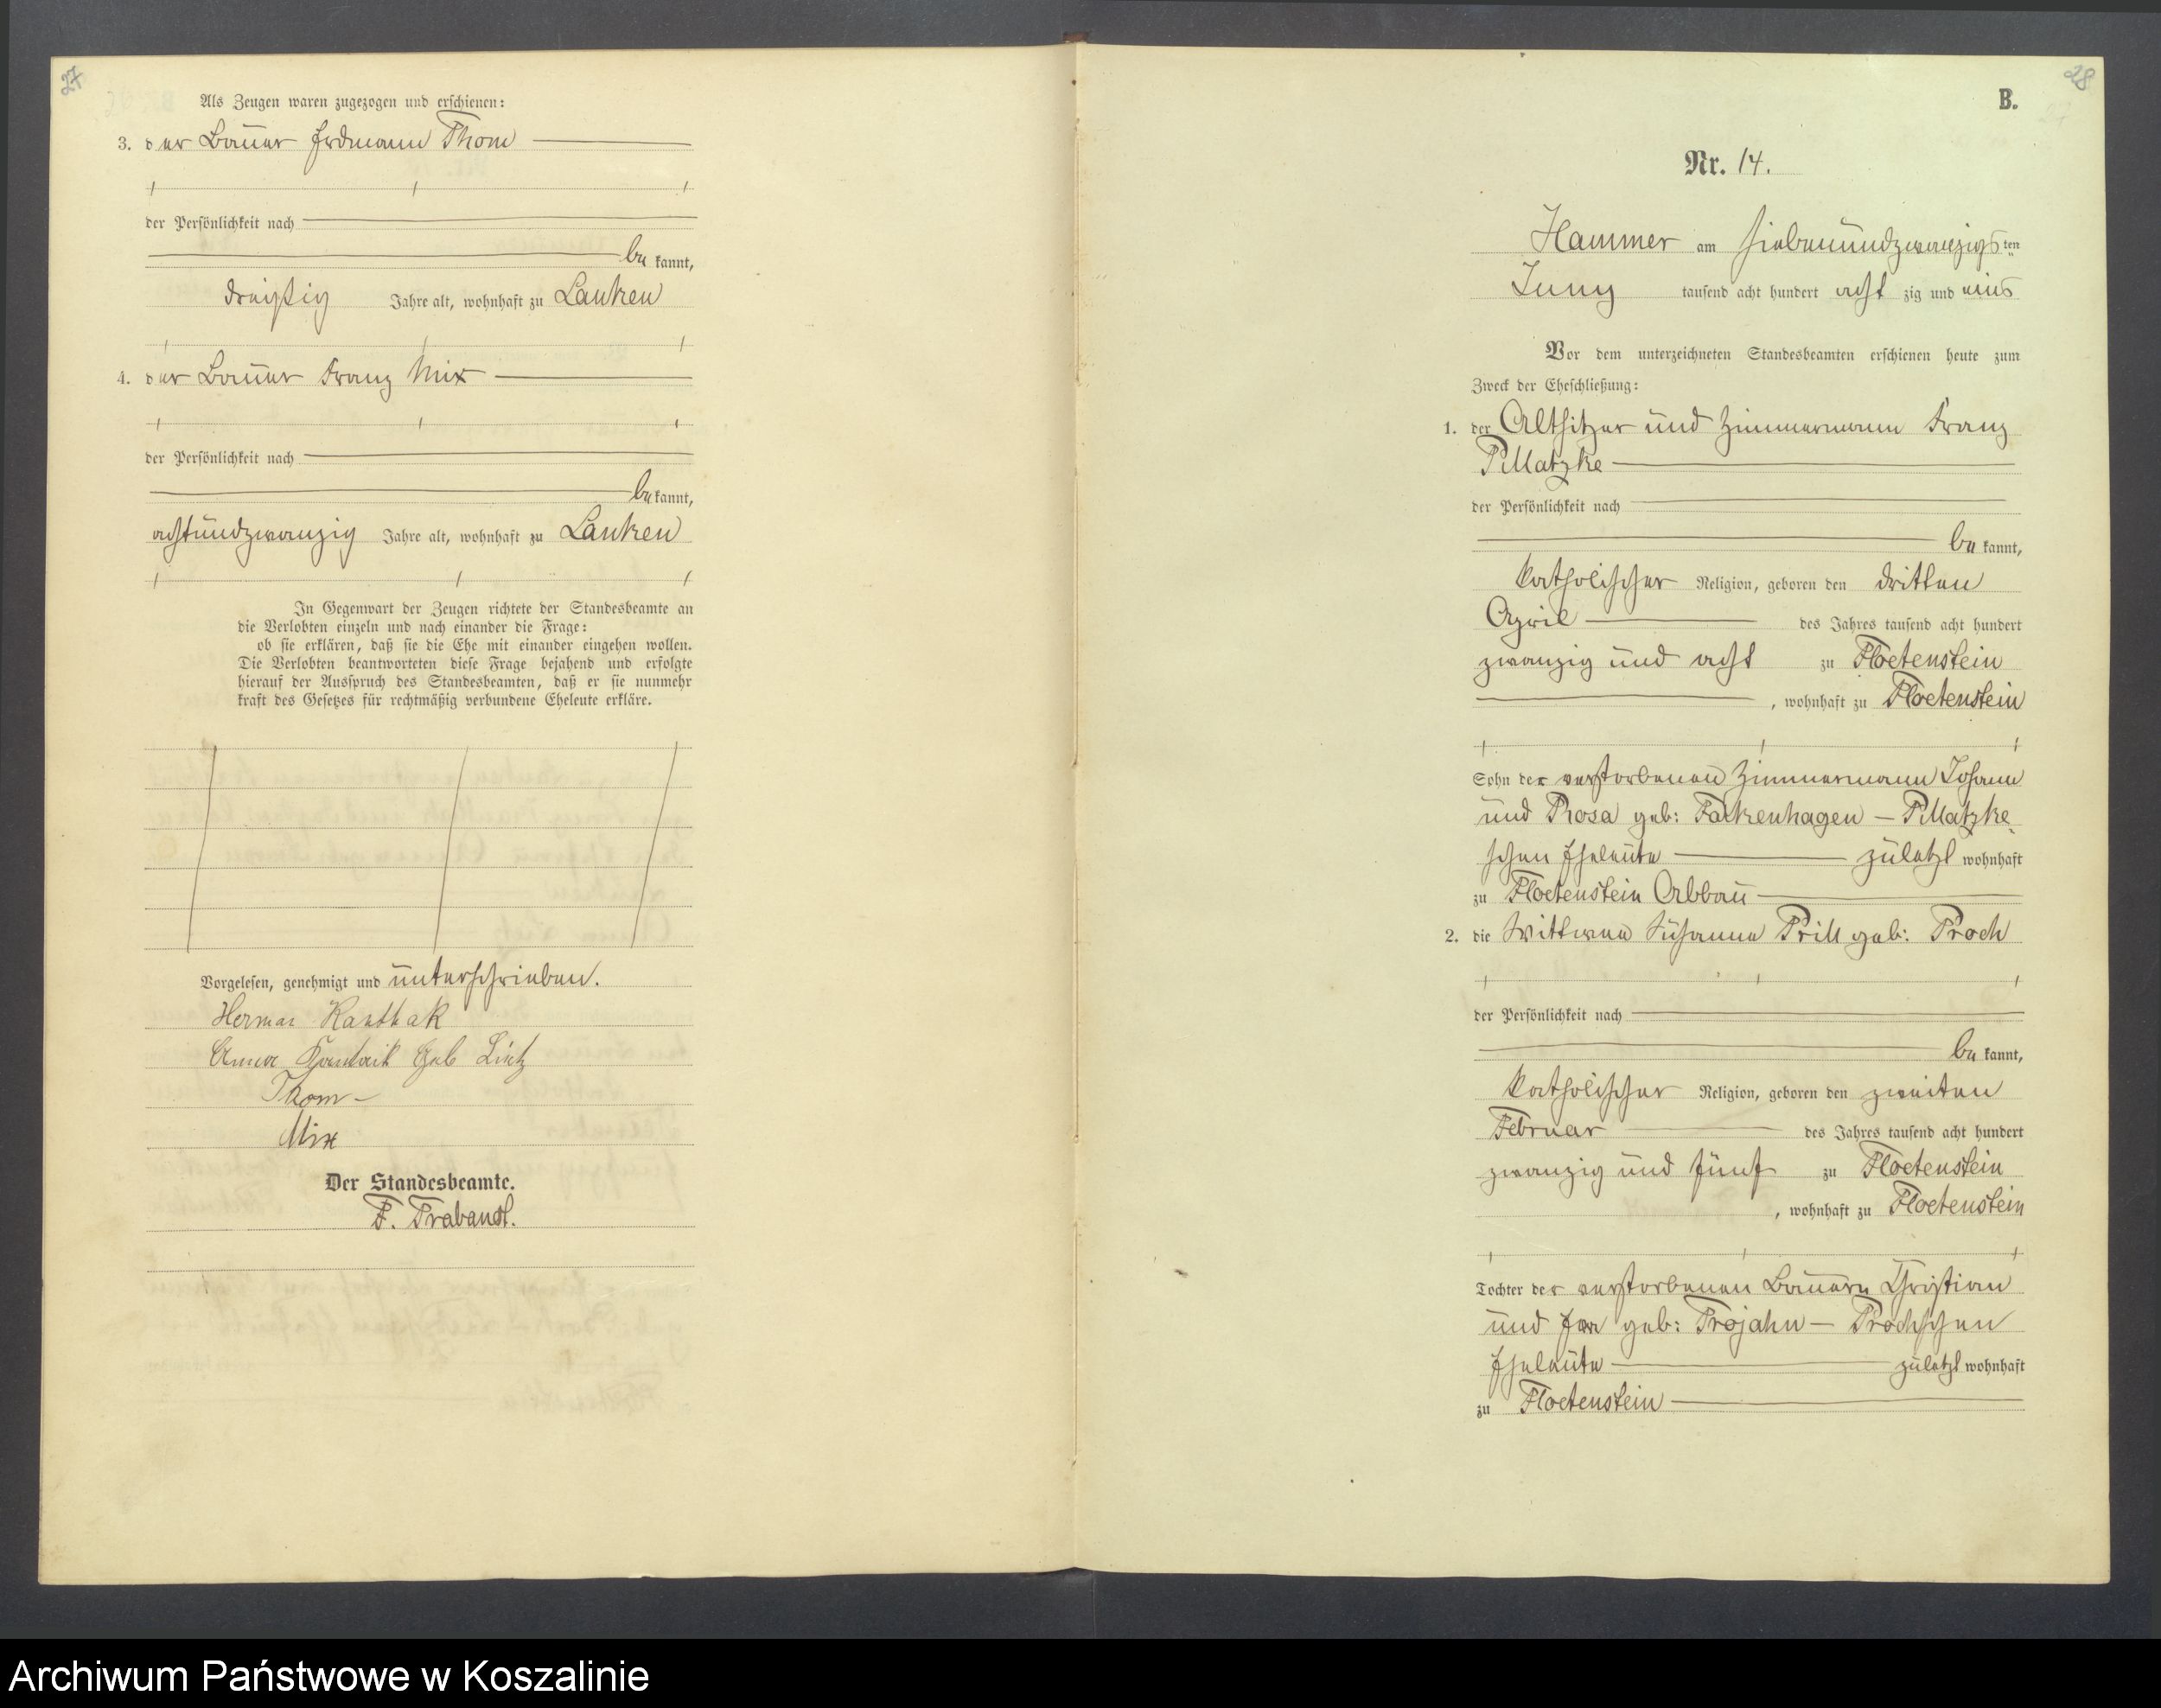 27
Als Zeugen waren zugezogen und erschienen:
3. der Bauer Erdmann Thom
der Persönlichkeit nach
be kannt,
dreißig Jahre alt, wohnhaft zu Lanken
4. der Bauer Franz Mix
der Persönlichkeit nach
be kannt,
achtundzwanzig Jahre alt, wohnhaft zu Lanken
In Gegenwart der Zeugen richtete der Standesbeamte an
die Verlobten einzeln und nach einander die Frage:
ob sie erklären, daß sie die Ehe mit einander eingehen wollen.
Die Verlobten beantworteten diese Frage bejahend und erfolgte
hierauf der Ausspruch des Standesbeamten, daß er sie nunmehr
kraft des Gesetzes für rechtmäßig verbundene Eheleute erkläre.
Vorgelesen, genehmigt und unterschrieben.
Herman Kanthak
Anna Geb Lietz
Thom
Mix
Der Standesbeamte.
F. Trabandt.
28
B.
Nr. 14.
Hammer am siebenundzwanzigsten
Juny tausend acht hundert acht zig und eins
Vor dem unterzeichneten Standesbeamten erschienen heute zum
Zweck der Eheschließung:
1. der Altsitzer und Zimmermann Franz
Pillatzke
der Persönlichkeit nach
be kannt,
katholischer Religion, geboren den dritten
April des Jahres tausend acht hundert
zwanzig und acht zu Floetenstein
, wohnhaft zu Floetenstein
Sohn der verstorbenen Zimmermann Johann
und Rosa geb: Falkenhagen – Pillatzke
schen Eheleute zuletzt wohnhaft
zu Floetenstein Abbau
2. die Wittwee Susanna Prill geb: Proch
der Persönlichkeit nach
be kannt,
katholischer Religion, geboren den zweiten
Februar des Jahres tausend acht hundert
zwanzig und fünf zu Floetenstein
, wohnhaft zu Floetenstein
Tochter der verstorbenen Bauern Christian
und Eva geb: Trojahn – Prochschen
Eheleute zuletzt wohnhaft
zu Floetenstein
Archiwum Państwowe w Koszalinie